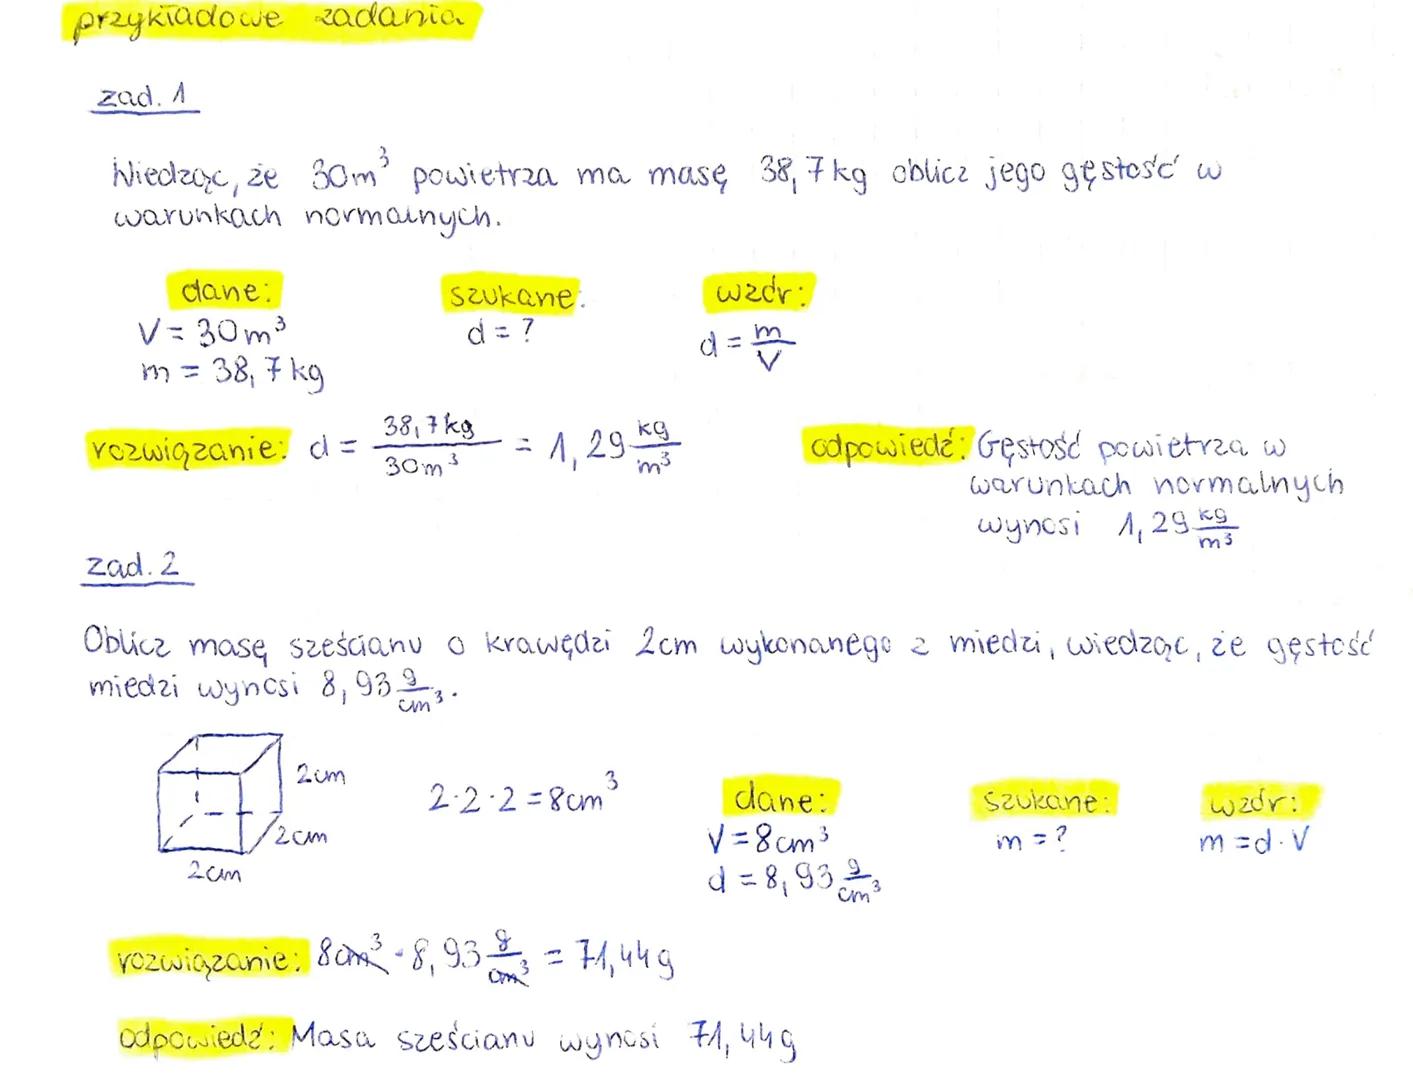 przykładowe zadania
zad. 1
Wiedząc, że 30m³ powietrza ma masę 38,7kg oblicz jego gęstość w
warunkach normalnych.
dane: szukane: wzór:
V = 30m³ d = ? d = m/V
m = 38,7kg
rozwiązanie: d = 38,7kg/30m³ = 1,29 kg/m³ odpowiedź: Gęstość powietrza w
warunkach normalnych
wynosi 1,29 kg/m³
zad. 2
Oblicz masę sześcianu o krawędzi 2cm wykonanego z miedzi, wiedząc, że gęstość
miedzi wynosi 8,93 g/cm³.
2cm
2cm
2cm
2·2·2=8cm³
dane: szukane: wzór:
V=8cm³ m=? m=d·V
d=8,93 g/cm³
rozwiązanie: 8cm³ · 8,93 g/cm³ = 71,44g
odpowiedź: Masa sześcianu wynosi 71,44g